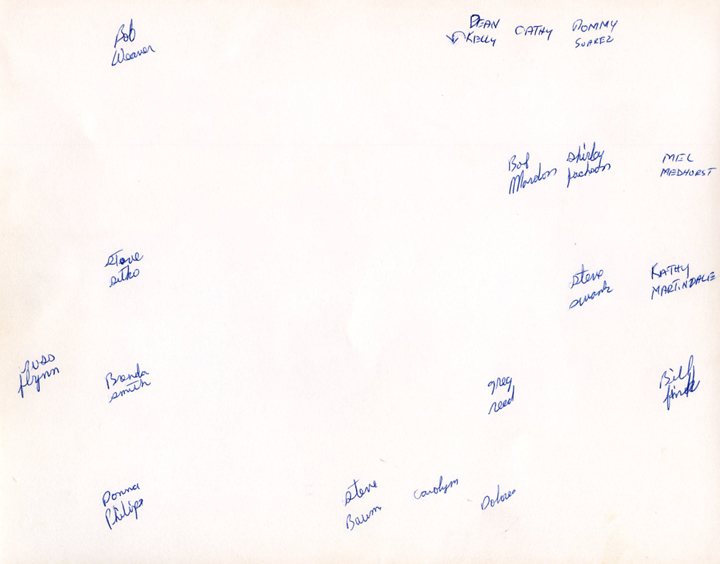 Bob
Weaver
DEAN
KELLY
CATHY
POMMY
SUAREZ
Bob
Mardon
Shirley
Jackson
MEL
MEDHURST
Steve
Sitko
Steve
Swank
KATHY
MARTINDALE
Flynn
Brenda
Smith
greg
reed
Bill
Donna
Philips
Steve
Baum
Carolyn
Dolores